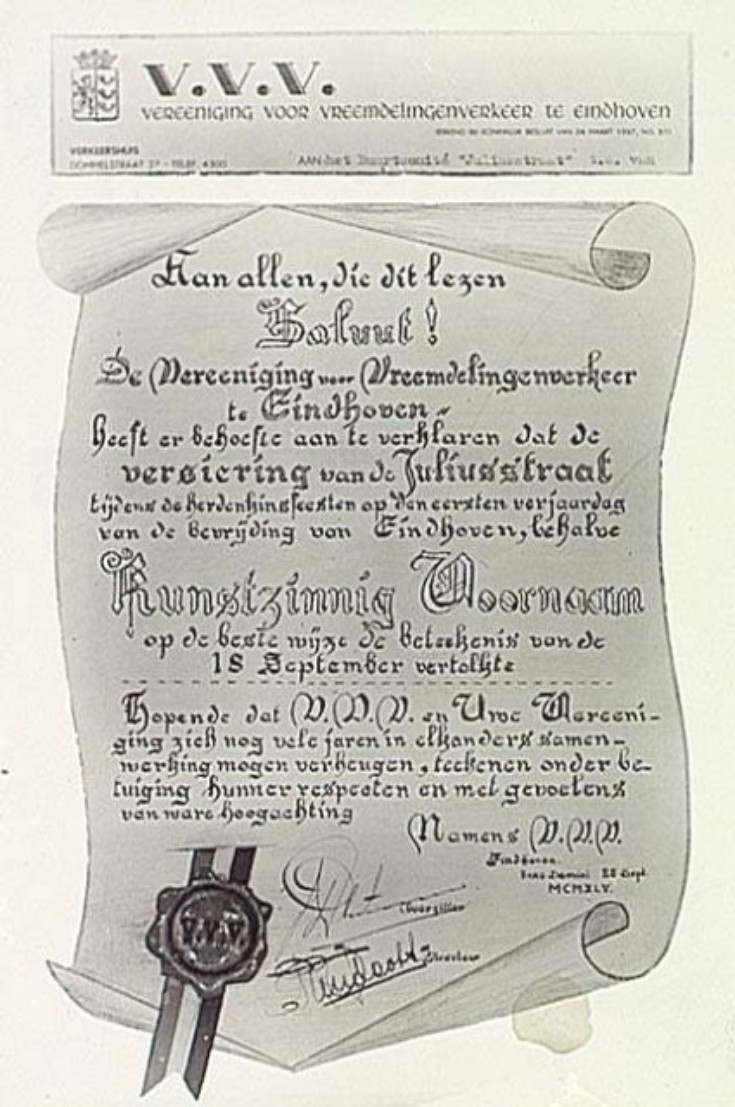 V.V.V.
VEREENIGING VOOR VREEMDELINGENVERKEER TE EINDHOVEN
VERKEERSHUIS
DOMMELSTRAAT 27 - TELEF. 4300
AAN het Buurtcomité "Juliusstraat"
Aan allen, die dit lezen
Saluut!
De Vereeniging voor Vreemdelingenverkeer
te Eindhoven
heeft er behoefte aan te verklaren dat de
versiering van de Juliusstraat
tijdens de herdenkinsfeesten op den eersten verjaardag
van de bevrijding van Eindhoven, behalve
Kunstzinnig Voornaam
op de beste wijze de beteekenis van de
18 September vertolkte
Hopende dat V.V.V. en Uwe Vereeni-
ging zich nog vele jaren in elkanders samen-
werking mogen verheugen, teekenen onder be-
tuiging hunner respecten en met gevoelens
van ware hoogachting
Namens V.V.V.
Eindhoven.
Anno Domini 28 Sept.
MCMXLV.
Voorzitter
Directeur
V.V.V.